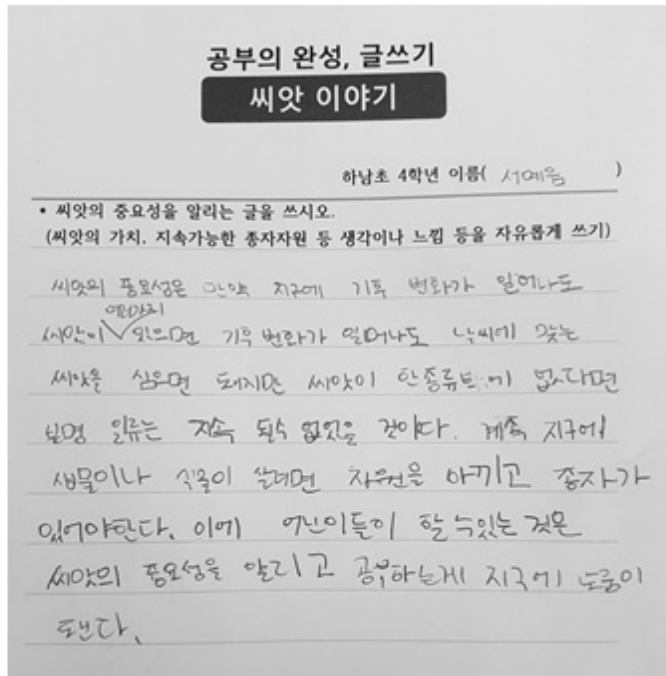 공부의 완성, 글쓰기
씨앗 이야기
하남초 4학년 이름( 서예음 )
• 씨앗의 중요성을 알리는 글을 쓰시오.
(씨앗의 가치, 지속가능한 종자자원 등 생각이나 느낌 등을 자유롭게 쓰기)
씨앗의 중요성은 만약 지구에 기후 변화가 일어나도
여러가지
씨앗이 있으면 기후 변화가 일어나도 날씨에 맞는
씨앗을 심으면 돼지만 씨앗이 한종류 에 없다면
분명 인류는 지속 될수 없었을 것이다. 계속 지구에
생물이나 식물이 살려면 자원을 아끼고 종자가
있어야한다. 이에 어린이들이 할 수있는 것은
씨앗의 중요성을 알리고 공부하는게 지구에 도움이
됀다.